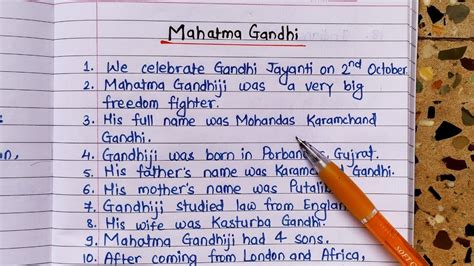 Mahatma Gandhi
1. We celebrate Gandhi Jayanti on 2nd October
2. Mahatma Gandhiji was a very big
freedom fighter.
3. His full name was Mohandas Karamchand
Gandhi.
4. Gandhiji was born in Gujrat.
5. His father's name was Gandhi.
6. His mother's name was
7. Gandhiji studied law from
8. His wife was Kasturba Gandhi.
9. Mahatma Gandhiji had 4 sons.
10. After coming from London and Africa,
on,